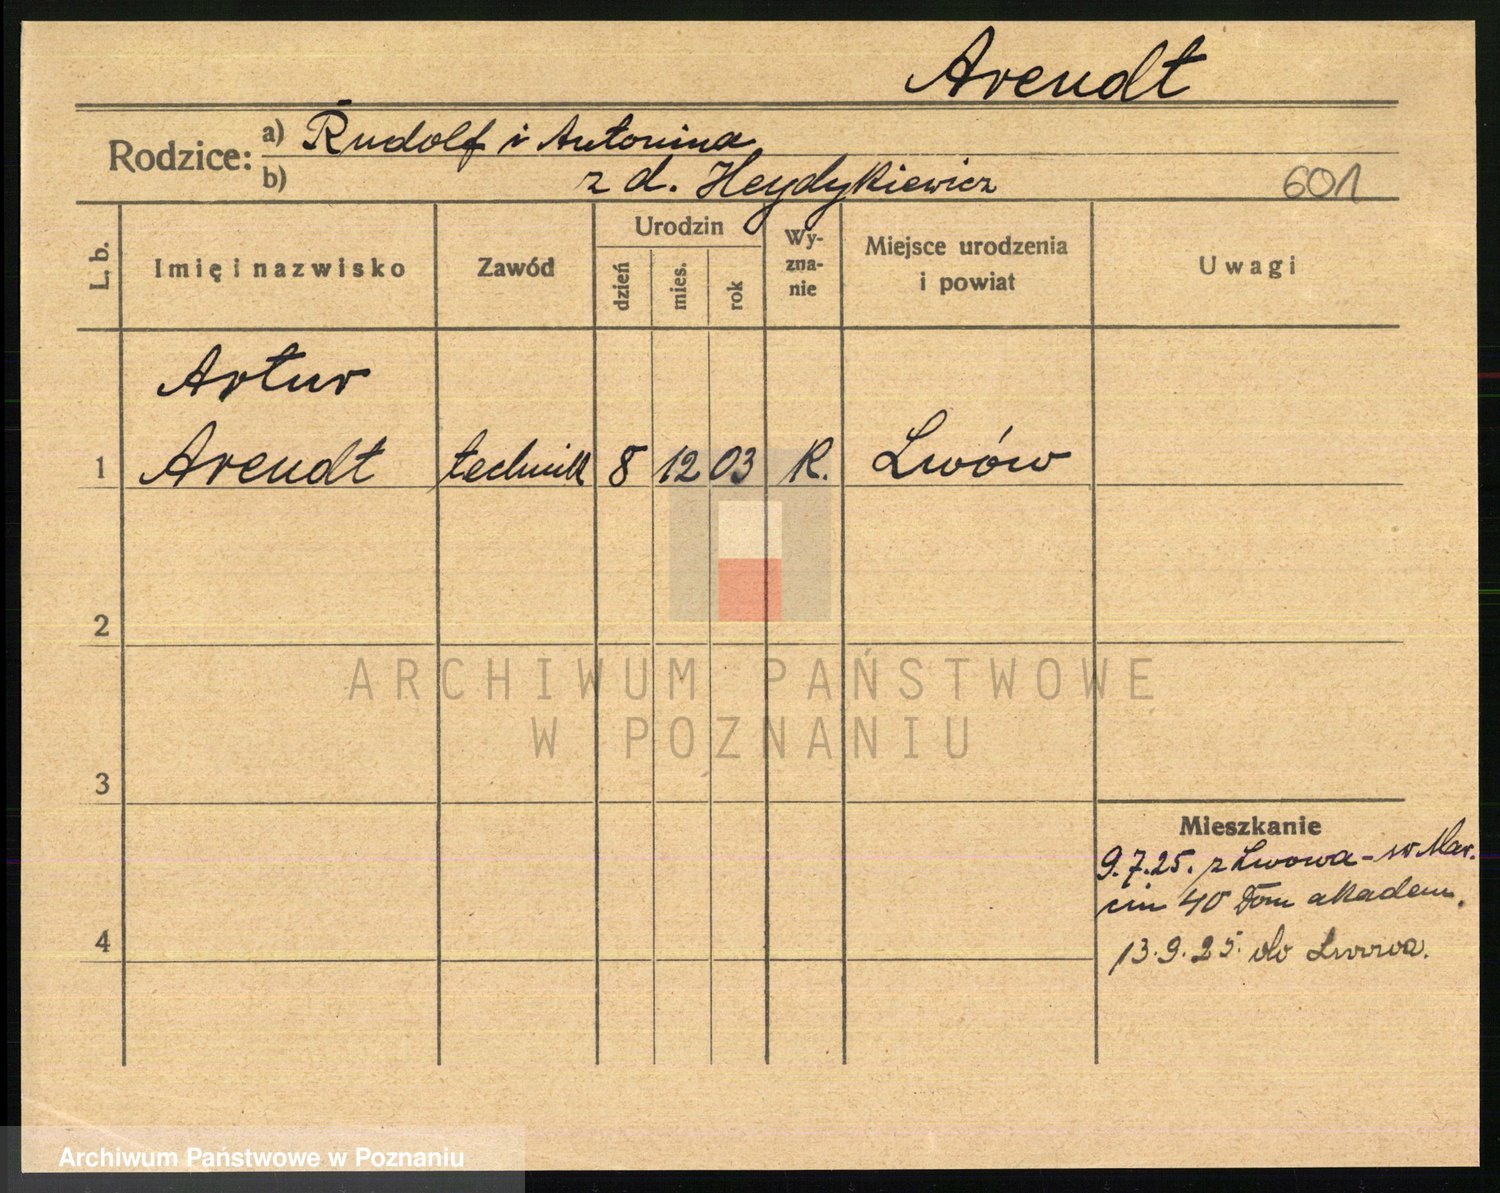 Arendt
Rodzice: a) Rudolf i Antonina
b) z d. Heydykiewicz
601
L. b.
Imię i nazwisko
Zawód
Urodzin
dzień
mies.
rok
Wy-
zna-
nie
Miejsce urodzenia
i powiat
Uwagi
Artur
1 Arendt technik 8 12 03 R. Lwów
2
3
4
Mieszkanie
9.7.25. z Lwowa - św Mar.
cin 40 Dom akadem.
13.9.25. do Lwowa.
ARCHIWUM PAŃSTWOWE
W POZNANIU
Archiwum Państwowe w Poznaniu